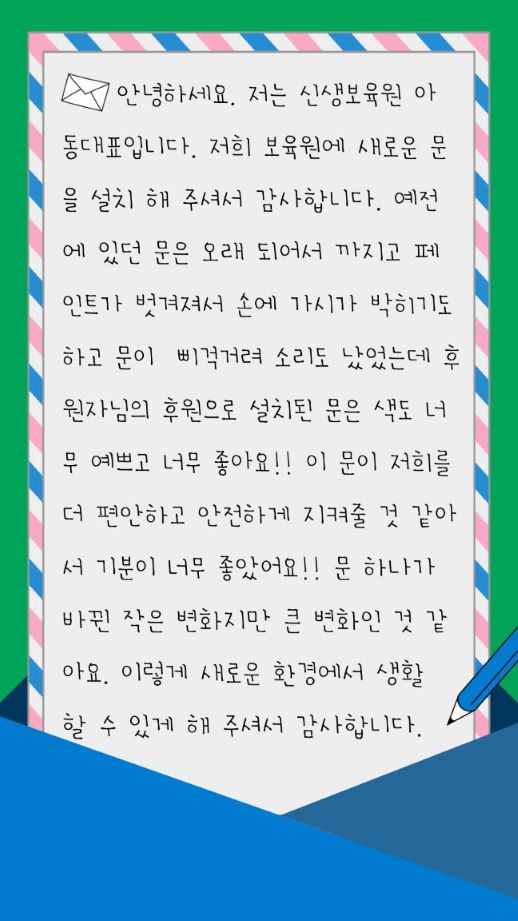 안녕하세요. 저는 신생보육원 아
동대표입니다. 저희 보육원에 새로운 문
을 설치 해 주셔서 감사합니다. 예전
에 있던 문은 오래 되어서 까지고 페
인트가 벗겨져서 손에 가시가 박히기도
하고 문이 삐걱거려 소리도 났었는데 후
원자님의 후원으로 설치된 문은 색도 너
무 예쁘고 너무 좋아요!! 이 문이 저희를
더 편안하고 안전하게 지켜줄 것 같아
서 기분이 너무 좋았어요!! 문 하나가
바뀐 작은 변화지만 큰 변화인 것 같
아요. 이렇게 새로운 환경에서 생활
할 수 있게 해 주셔서 감사합니다.